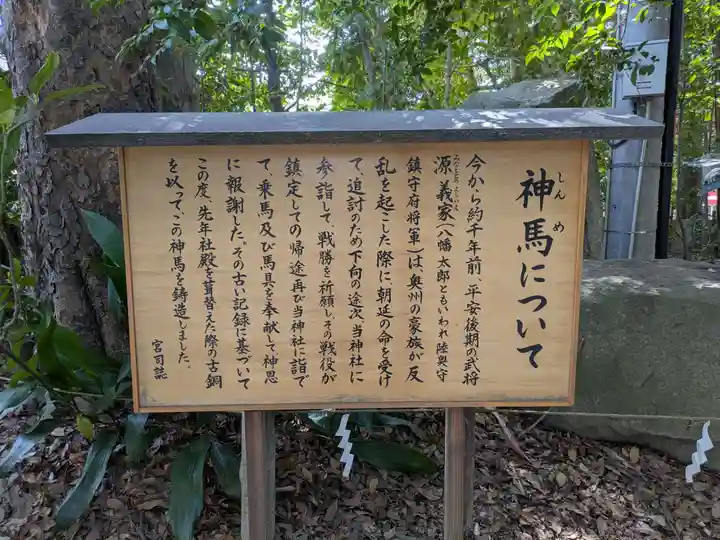 神馬について
しんめ
今から約千年前、平安後期の武将
源義家(八幡太郎ともいわれ陸奥守
みなもとの よしいえ
鎮守府将軍)は、奥州の豪族が反
乱を起こした際に朝廷の命を受け
て、追討のため下向の途次当神社に
参詣して、戦勝を祈願し、その戦役が
鎮定しての帰途再び当神社に詣で
て、乗馬及び馬具を奉献して神恩
に報謝した。その古い記録に基づいて
この度、先年社殿を葺替えた際の古銅
を以って、この神馬を鋳造しました。
宮司誌